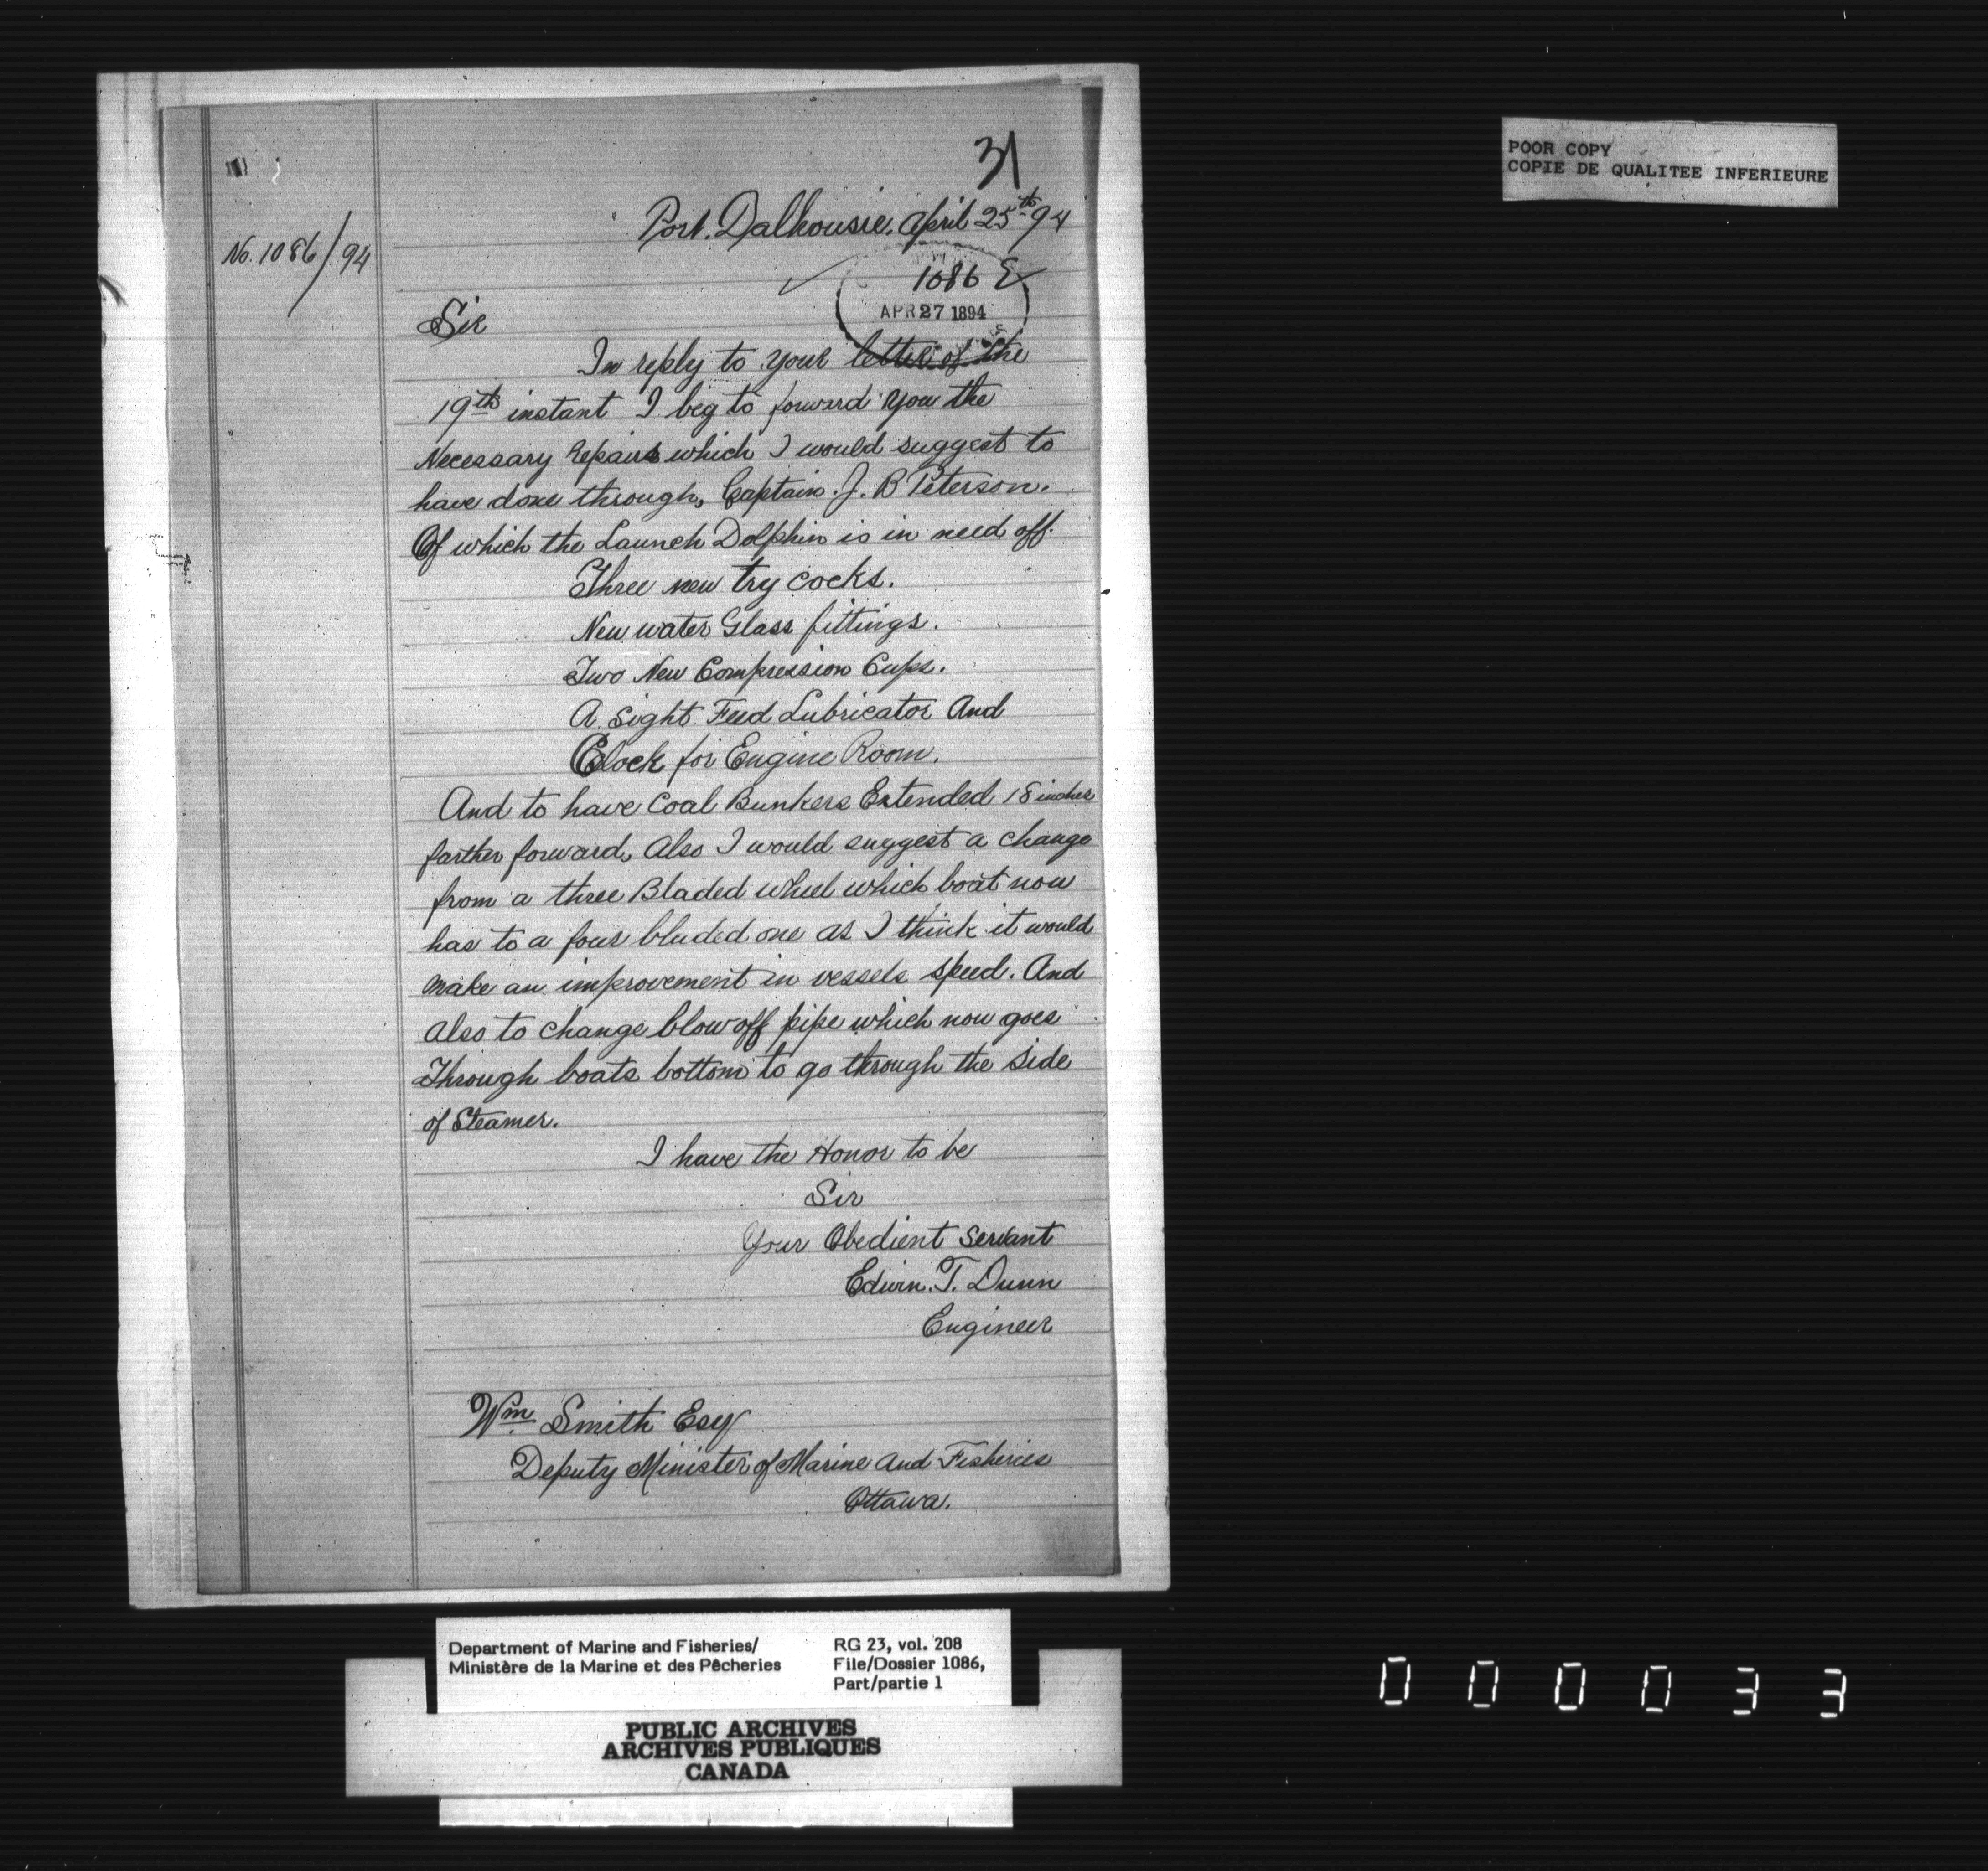 31
Port. Dalhousie. April 25th 94
No. 1086/94
1086 E
APR 27 1894
Sir
In reply to your letter of the
19th instant I beg to forward you the
Necessary Repairs which I would suggest to
have done through, Captain. J. B Peterson.
Of which the Launch Dolphin is in need off.
Three new try cocks.
New water Glass fittings.
Two New Compression Cups.
A. Sight Feed Lubricator And
Clock for Engine Room.
And to have Coal Bunkers Extended 18 inches
farther forward, Also I would suggest a change
from a three Bladed wheel which boat now
has to a four bladed one as I think it would
make an improvement in vessels speed. And
also to change blow off pipe which now goes
Through boats bottom to go through the side
of Steamer.
I have the Honor to be
Sir
Your Obedient Servant
Edwin. T. Dunn
Engineer
Wm. Smith Esq
Deputy Minister of Marine and Fisheries
Ottawa.
POOR COPY
COPIE DE QUALITEE INFERIEURE
Department of Marine and Fisheries/
Ministère de la Marine et des Pêcheries
RG 23, vol. 208
File/Dossier 1086,
Part/partie 1
PUBLIC ARCHIVES
ARCHIVES PUBLIQUES
CANADA
000033